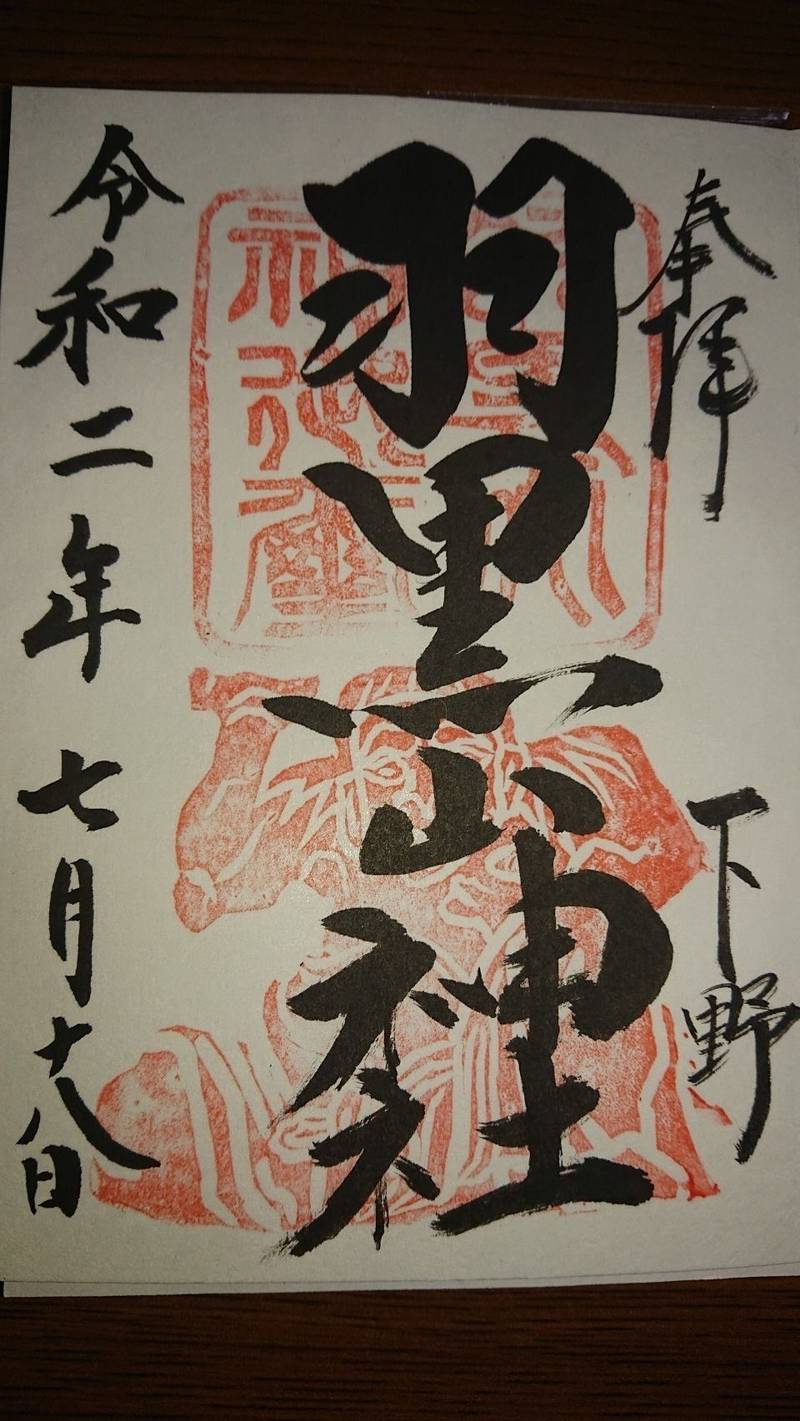 奉拝
下野
羽黒山神社
令和二年七月十八日